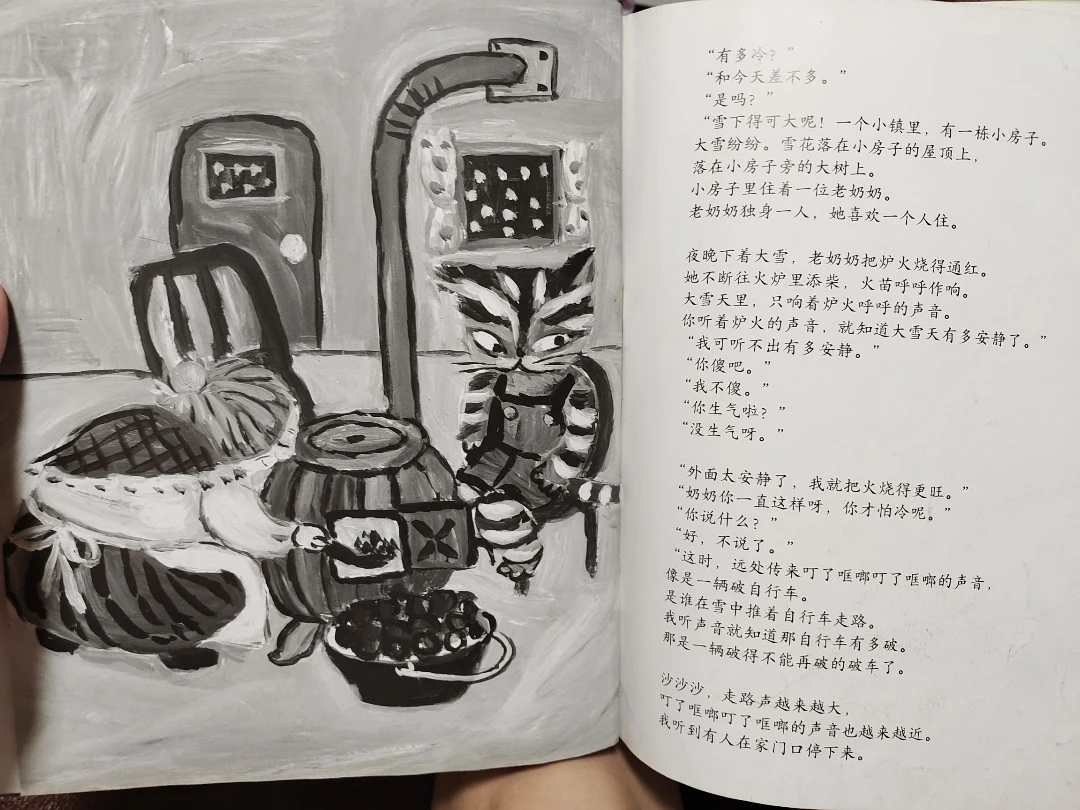 “有多冷？”
“和今天差不多。”
“是吗？”
“雪下得可大呢！一个小镇里，有一栋小房子。
大雪纷纷。雪花落在小房子的屋顶上，
落在小房子旁的大树上。
小房子里住着一位老奶奶。
老奶奶独身一人，她喜欢一个人住。
夜晚下着大雪，老奶奶把炉火烧得通红。
她不断往火炉里添柴，火苗呼呼作响。
大雪天里，只响着炉火呼呼的声音。
你听着炉火的声音，就知道大雪天有多安静了。”
“我可听不出有多安静。”
“你傻吧。”
“我不傻。”
“你生气啦？”
“没生气呀。”
“外面太安静了，我就把火烧得更旺。”
“奶奶你一直这样呀，你才怕冷呢。”
“你说什么？”
“好，不说了。”
“这时，远处传来叮了哐啷叮了哐啷的声音，
像是一辆破自行车。
是谁在雪中推着自行车走路。
我听声音就知道那自行车有多破。
那是一辆破得不能再破的破车了。
沙沙沙，走路声越来越大，
叮了哐啷叮了哐啷的声音也越来越近。
我听到有人在家门口停下来。